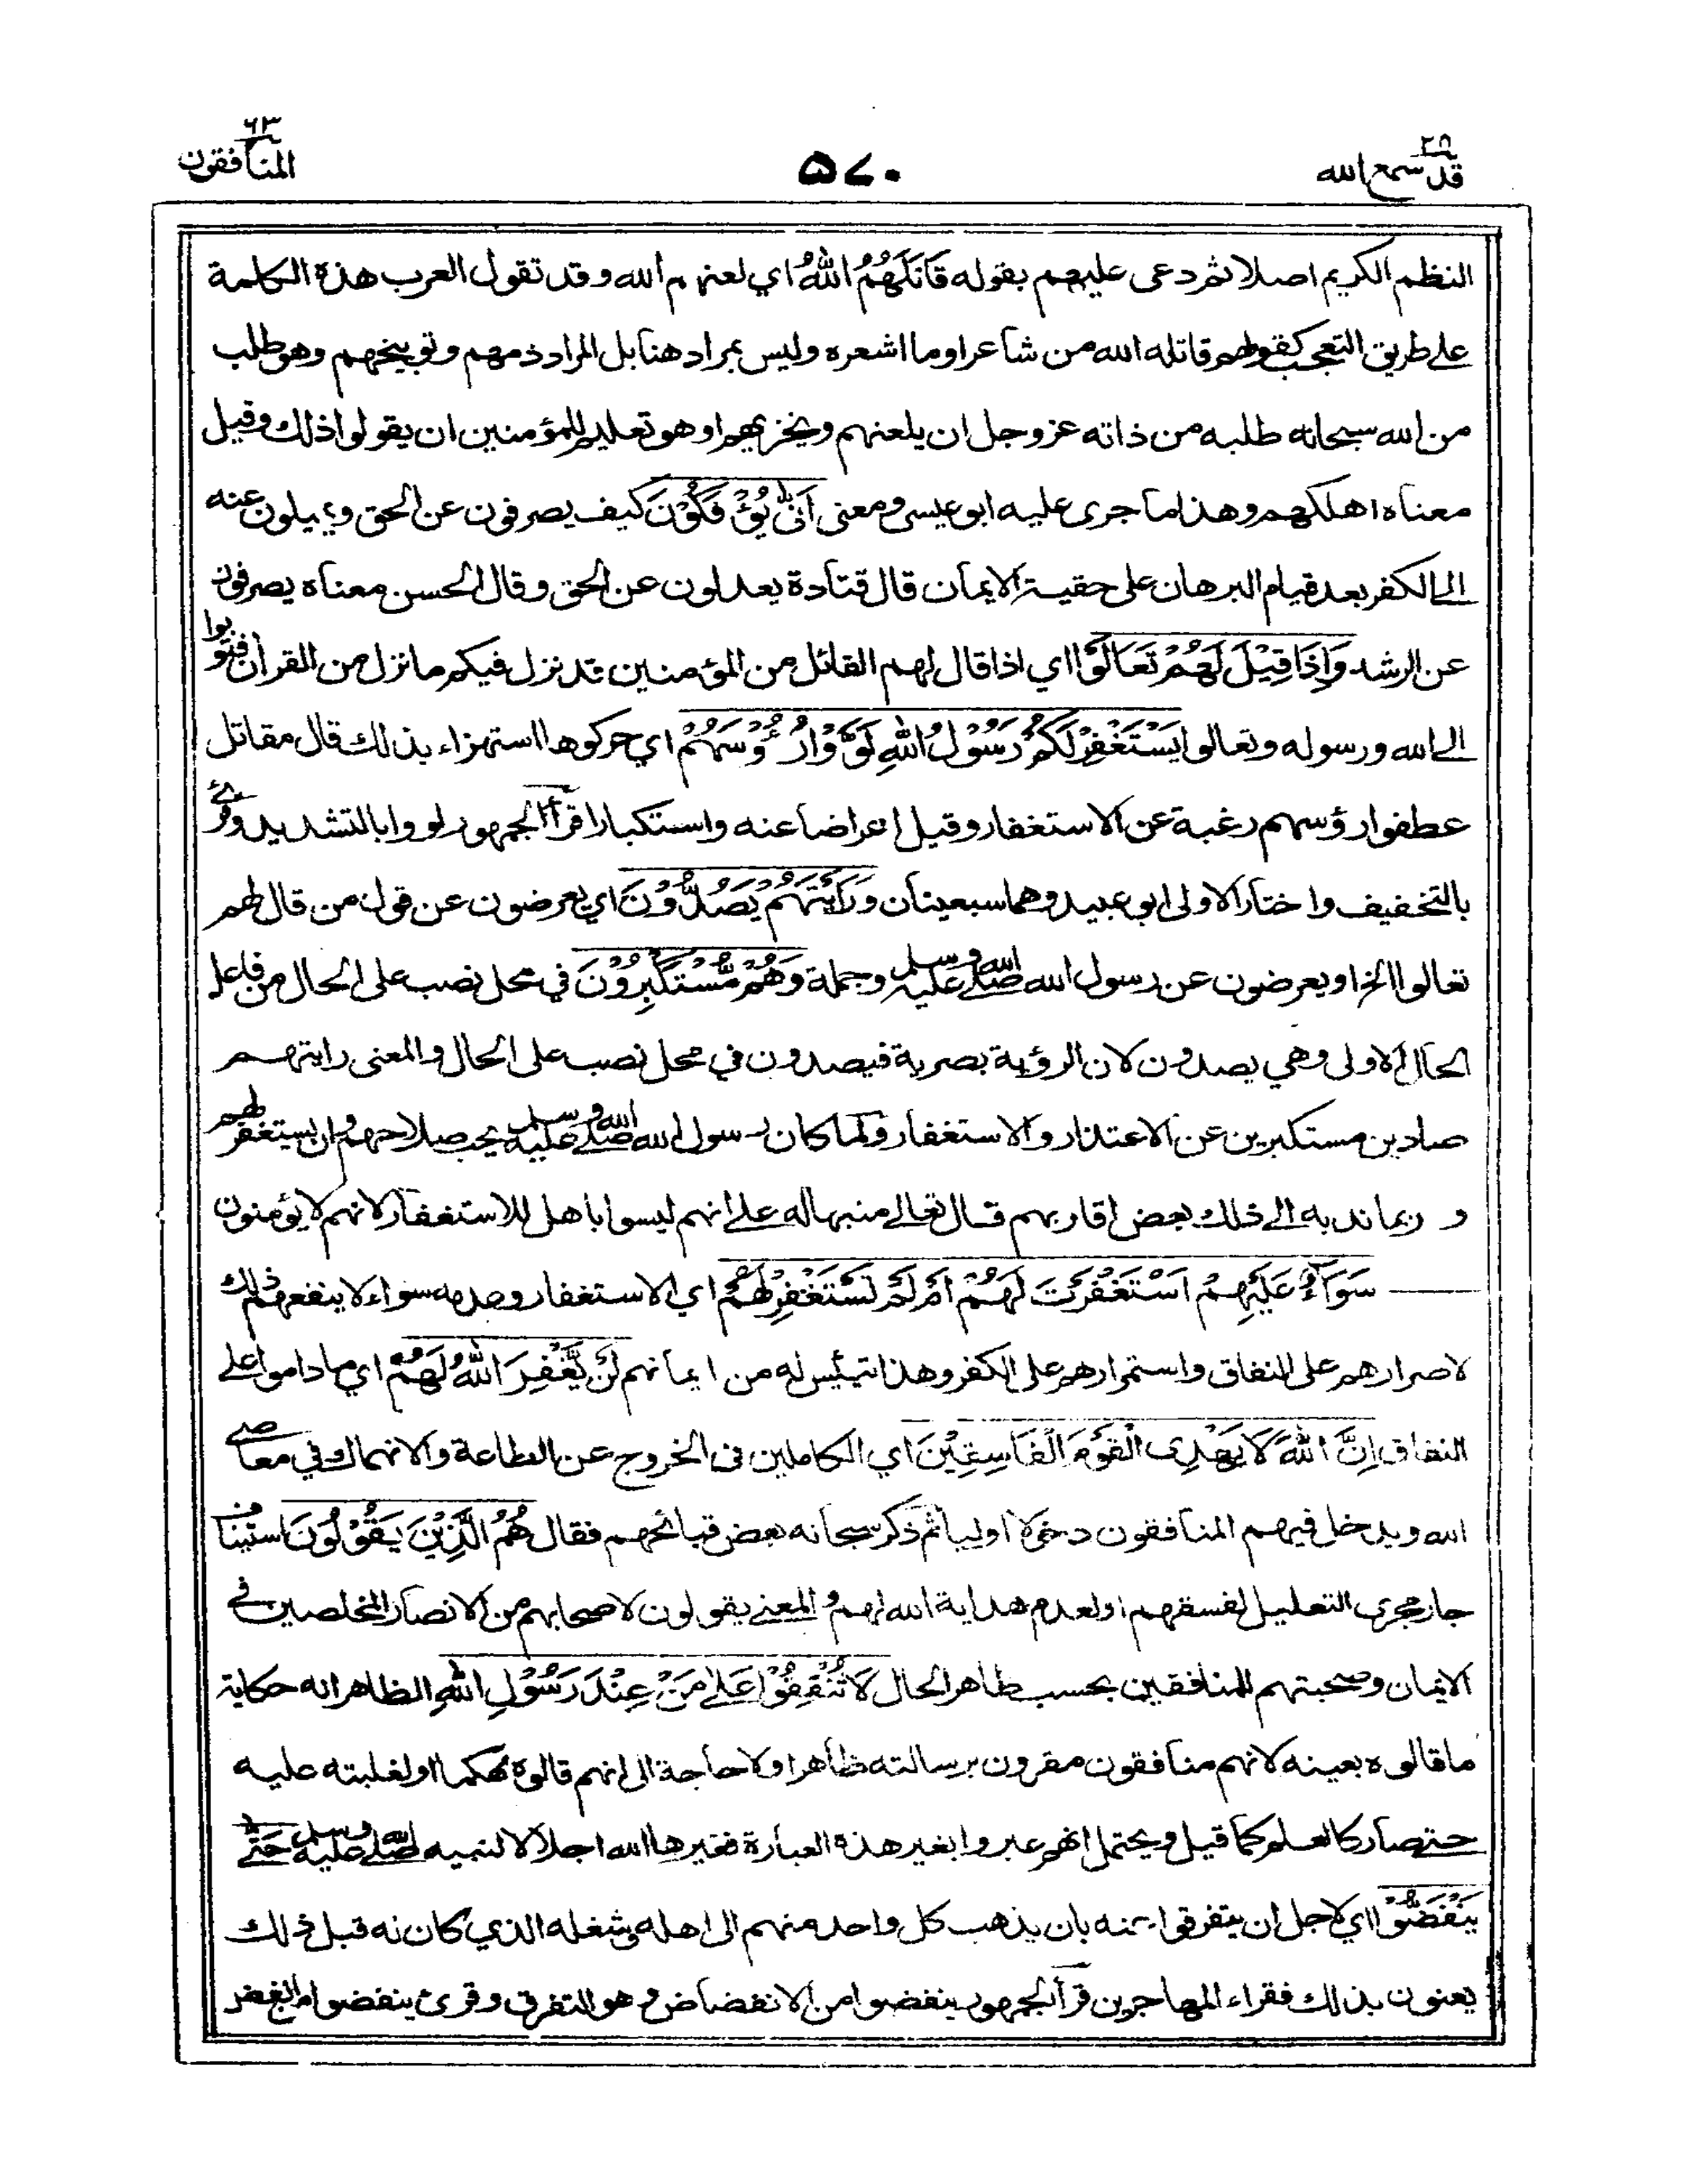 قد سمع الله ٢٨
٥٧٠
المنافقون ٦٣
النظم الكريم اصلا ثم دعى عليهم بقوله قَاتَلَهُمُ اللهُ اي لعنهم الله وقد تقول العرب هذه الكلمة
على طريق التعجب كقولهم قاتله الله من شاعر او ما اشعره وليس بمراد هنا بل المراد ذمهم وتوبيخهم وهو طلب
من الله سبحانه طلبه من ذاته عز وجل ان يلعنهم ويخزيهم او هو تعليم للمؤمنين ان يقولوا ذلك وقيل
معناه اهلكهم وهذا ما جرى عليه ابو عيسى ومعنى اَنّٰى يُؤْفَكُوْنَ كيف يصرفون عن الحق ويميلون عنه
الى الكفر بعد قيام البرهان على حقية الايمان قال قتادة يعدلون عن الحق وقال الحسن معناه يصرفون
عن الرشد وَاِذَا قِيْلَ لَهُمْ تَعَالَوْا اي اذا قال لهم القائل من المؤمنين قد نزل فيكم ما نزل من القرآن فتوبوا
الى الله ورسوله وتعالوا يَسْتَغْفِرْ لَكُمْ رَسُوْلُ اللهِ لَوَّوْا رُءُوْسَهُمْ اي حركوها استهزاء بذلك قال مقاتل
عطفوا رؤسهم رغبة عن الاستغفار وقيل اعراضا عنه واستكبارا قرأ الجمهور لووا بالتشديد وقرئ
بالتخفيف واختار الاولى ابو عبيد وهما سبعيتان وَرَاَيْتَهُمْ يَصُدُّوْنَ اي يعرضون عن قول من قال لهم
تعالوا الخ او يعرضون عن رسول الله صلى الله عليه وسلم وجملة وَهُمْ مُّسْتَكْبِرُوْنَ في محل نصب على الحال من فاعل
الحال الاولى وهي يصدون لان الرؤية بصرية فيصدون في محل نصب على الحال والمعنى رايتهم
صادين مستكبرين عن الاعتذار والاستغفار ولما كان رسول الله صلى الله عليه وسلم يحب صلاحهم وان يستغفر لهم
و ربما ندبه الى ذلك بعض اقاربهم قال تعالى منبها له على انهم ليسوا باهل للاستغفار لانهم لا يؤمنون
سَوَآءٌ عَلَيْهِمْ اَسْتَغْفَرْتَ لَهُمْ اَمْ لَمْ تَسْتَغْفِرْ لَهُمْ اي الاستغفار وعدمه سواء لا ينفعهم ذلك
لاصرارهم على النفاق واستمرارهم على الكفر وهذا تيئيس له من ايمانهم لَنْ يَّغْفِرَ اللهُ لَهُمْ اي ما داموا على
النفاق اِنَّ اللهَ لَا يَهْدِى الْقَوْمَ الْفَاسِقِيْنَ اي الكاملين فى الخروج عن الطاعة والانهماك في معاصي
الله ويدخل فيهم المنافقون دخولا اوليا ثم ذكر سبحانه بعض قبائحهم فقال هُمُ الَّذِيْنَ يَقُوْلُوْنَ استيناف
جار مجرى التعليل لفسقهم او لعدم هداية الله لهم والمعنى يقولون لاصحابهم من الانصار المخلصين في
الايمان وصحبتهم للمنافقين بحسب ظاهر الحال لَا تُنْفِقُوْا عَلٰى مَنْ عِنْدَ رَسُوْلِ اللهِ الظاهر انه حكاية
ما قالوه بعينه لانهم منافقون مقرون برسالته ظاهرا ولا حاجة الى انهم قالوه تهكما او لغلبته عليه
حتى صار كالعلم كما قيل ويحتمل انهم عبروا بغير هذه العبارة فغيرها الله اجلالا لنبيه صلى الله عليه وسلم حَتّٰى
يَنْفَضُّوْا اي لاجل ان يتفرقوا عنه بان يذهب كل واحد منهم الى اهله وشغله الذي كان له قبل ذلك
يعنون بذلك فقراء المهاجرين قرأ الجمهور ينفضوا من الانفضاض وهو التفرق وقرئ ينفضوا من انفض